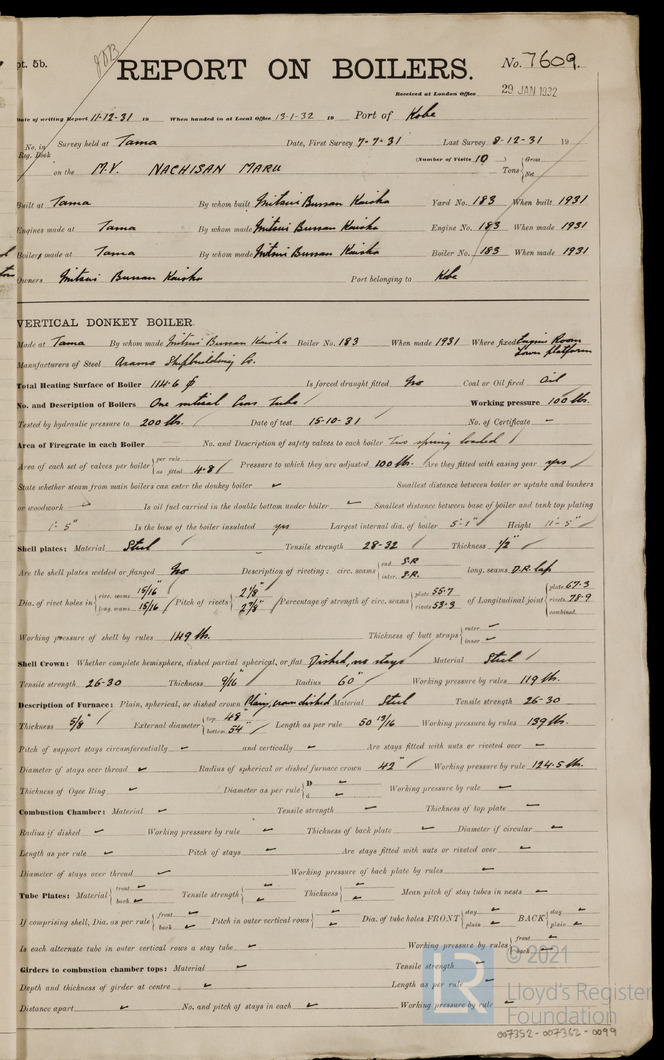 pt. 5b.
REPORT ON BOILERS.
No. 7609.
Received at London Office 29 JAN 1932
Date of writing Report 11-12-31 19 When handed in at Local Office 13-1-32 19 Port of Kobe
No. in Reg. Book Survey held at Tama Date, First Survey 7-7-31 Last Survey 8-12-31 19
(Number of Visits 10 )
on the M.V. NACHISAN MARU Tons { Gross Net
Built at Tama By whom built Mitsui Bussan Kaisha Yard No. 183 When built 1931
Engines made at Tama By whom made Mitsui Bussan Kaisha Engine No. 183 When made 1931
Boilers made at Tama By whom made Mitsui Bussan Kaisha Boiler No. 183 When made 1931
Owners Mitsui Bussan Kaisha Port belonging to Kobe
VERTICAL DONKEY BOILER
Made at Tama By whom made Mitsui Bussan Kaisha Boiler No. 183 When made 1931 Where fixed Engine Room Lower platform
Manufacturers of Steel Asano Shipbuilding Co.
Total Heating Surface of Boiler 114.6 ϕ Is forced draught fitted No Coal or Oil fired Oil
No. and Description of Boilers One vertical Cross Tube Working pressure 100 lbs.
Tested by hydraulic pressure to 200 lbs. Date of test 15-10-31 No. of Certificate -
Area of Firegrate in each Boiler No. and Description of safety valves to each boiler Two spring loaded
Area of each set of valves per boiler { per rule as fitted 4.81 Pressure to which they are adjusted 100 lbs. Are they fitted with easing gear yes
State whether steam from main boilers can enter the donkey boiler Smallest distance between boiler or uptake and bunkers
or woodwork Is oil fuel carried in the double bottom under boiler Smallest distance between base of boiler and tank top plating
1'-5" Is the base of the boiler insulated yes Largest internal dia. of boiler 5'-1" Height 11'-5"
Shell plates: Material Steel Tensile strength 28-32 Thickness 1/2"
Are the shell plates welded or flanged No Description of riveting: circ. seams { end S.R inter. S.R. long. seams D.R. lap
Dia. of rivet holes in { circ. seams 15/16" long. seams 15/16 Pitch of rivets { 2 1/8" 2 7/8" Percentage of strength of circ. seams { plate 55.7 rivets 53.3 of Longitudinal joint { plate 67.3 rivets 78.9 combined
Working pressure of shell by rules 149 lbs. Thickness of butt straps { outer inner
Shell Crown: Whether complete hemisphere, dished partial spherical, or flat Dished, no stays Material Steel
Tensile strength 26-30 Thickness 9/16" Radius 60" Working pressure by rules 119 lbs.
Description of Furnace: Plain, spherical, or dished crown Plain, crown dished Material Steel Tensile strength 26-30
Thickness 5/8" External diameter { top 48" bottom 54" Length as per rule 50 13/16 Working pressure by rules 139 lbs.
Pitch of support stays circumferentially and vertically Are stays fitted with nuts or riveted over
Diameter of stays over thread Radius of spherical or dished furnace crown 42" Working pressure by rule 124.5 lbs.
Thickness of Ogee Ring Diameter as per rule { D d Working pressure by rule
Combustion Chamber: Material Tensile strength Thickness of top plate
Radius if dished Working pressure by rule Thickness of back plate Diameter if circular
Length as per rule Pitch of stays Are stays fitted with nuts or riveted over
Diameter of stays over thread Working pressure of back plate by rules
Tube Plates: Material { front back Tensile strength { Thickness { Mean pitch of stay tubes in nests
If comprising shell, Dia. as per rule { front back Pitch in outer vertical rows { Dia. of tube holes FRONT { stay plain BACK { stay plain
Is each alternate tube in outer vertical rows a stay tube Working pressure by rules { front back
Girders to combustion chamber tops: Material Tensile strength
Depth and thickness of girder at centre Length as per rule
Distance apart No. and pitch of stays in each Working pressure by rule
© 2021
Lloyd's Register
Foundation
007352-007362-0099